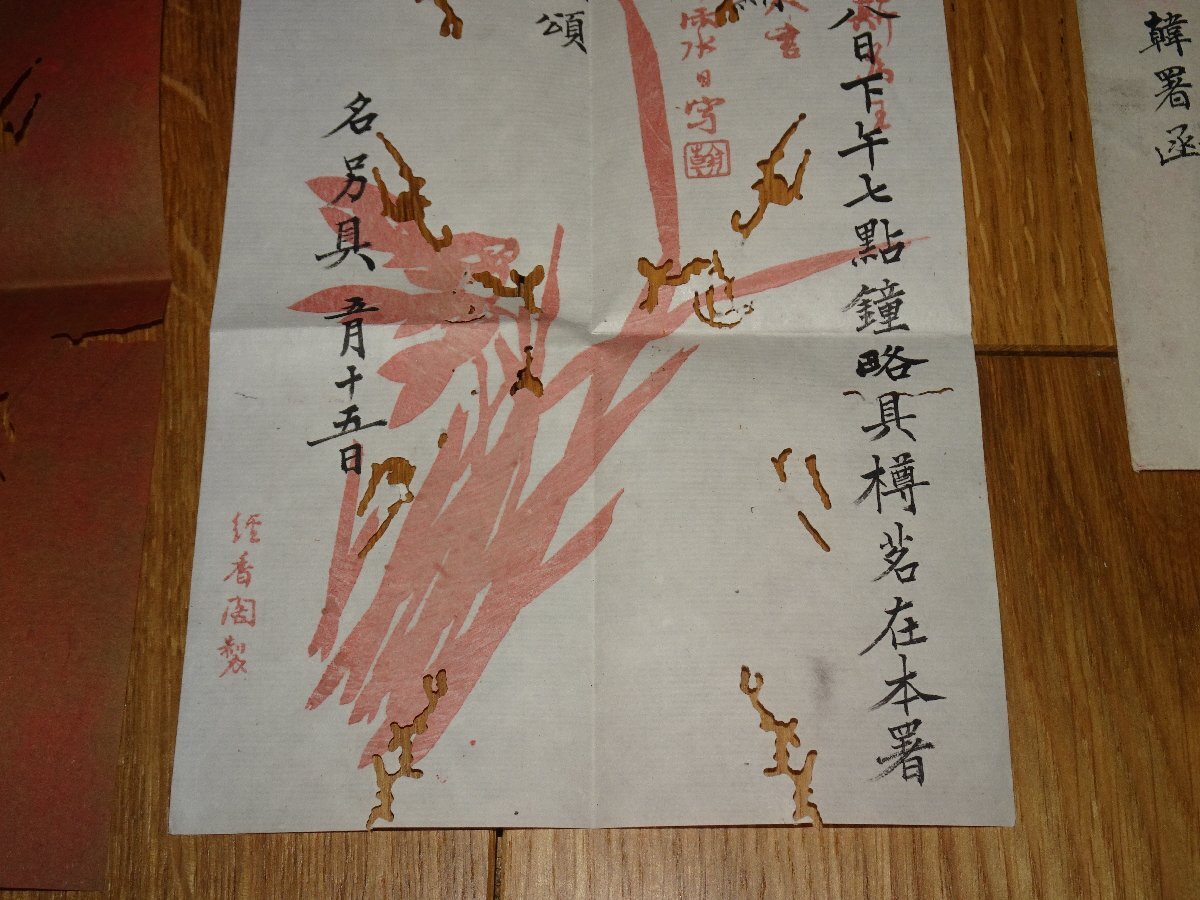 韓署函
八日下午七點鐘略具樽茗在本署
雨水日寫
翰
頌
名另具 五月十五日
經香閣製